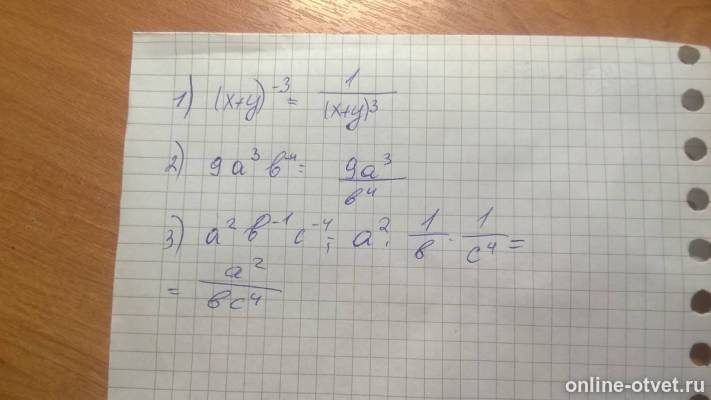 1) (x+y)⁻³ = 1/(x+y)³
2) 9a³ b⁻⁴ = 9a³/b⁴
3) a² b⁻¹ c⁻⁴ = a² · 1/b · 1/c⁴ =
= a²/bc⁴
online-otvet.ru